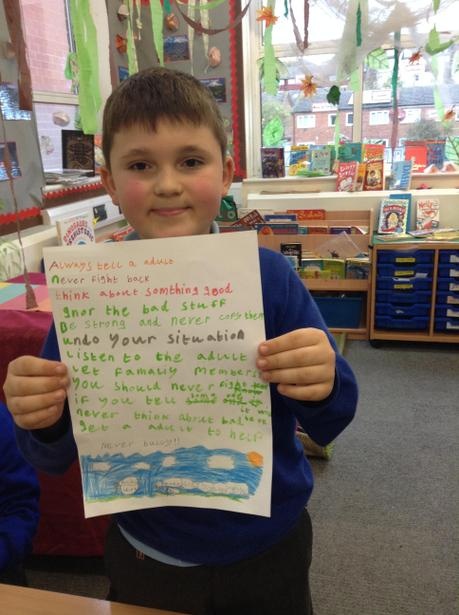 Always tell a adult
never fight back
think about somthing good
gnor the bad stuff
Be strong and never copy them
undo your situation
Listen to the adult
Let Famaliy members
you should never fight
if you tell some one it
never think about bad
get a adult to help
Never bulley!!